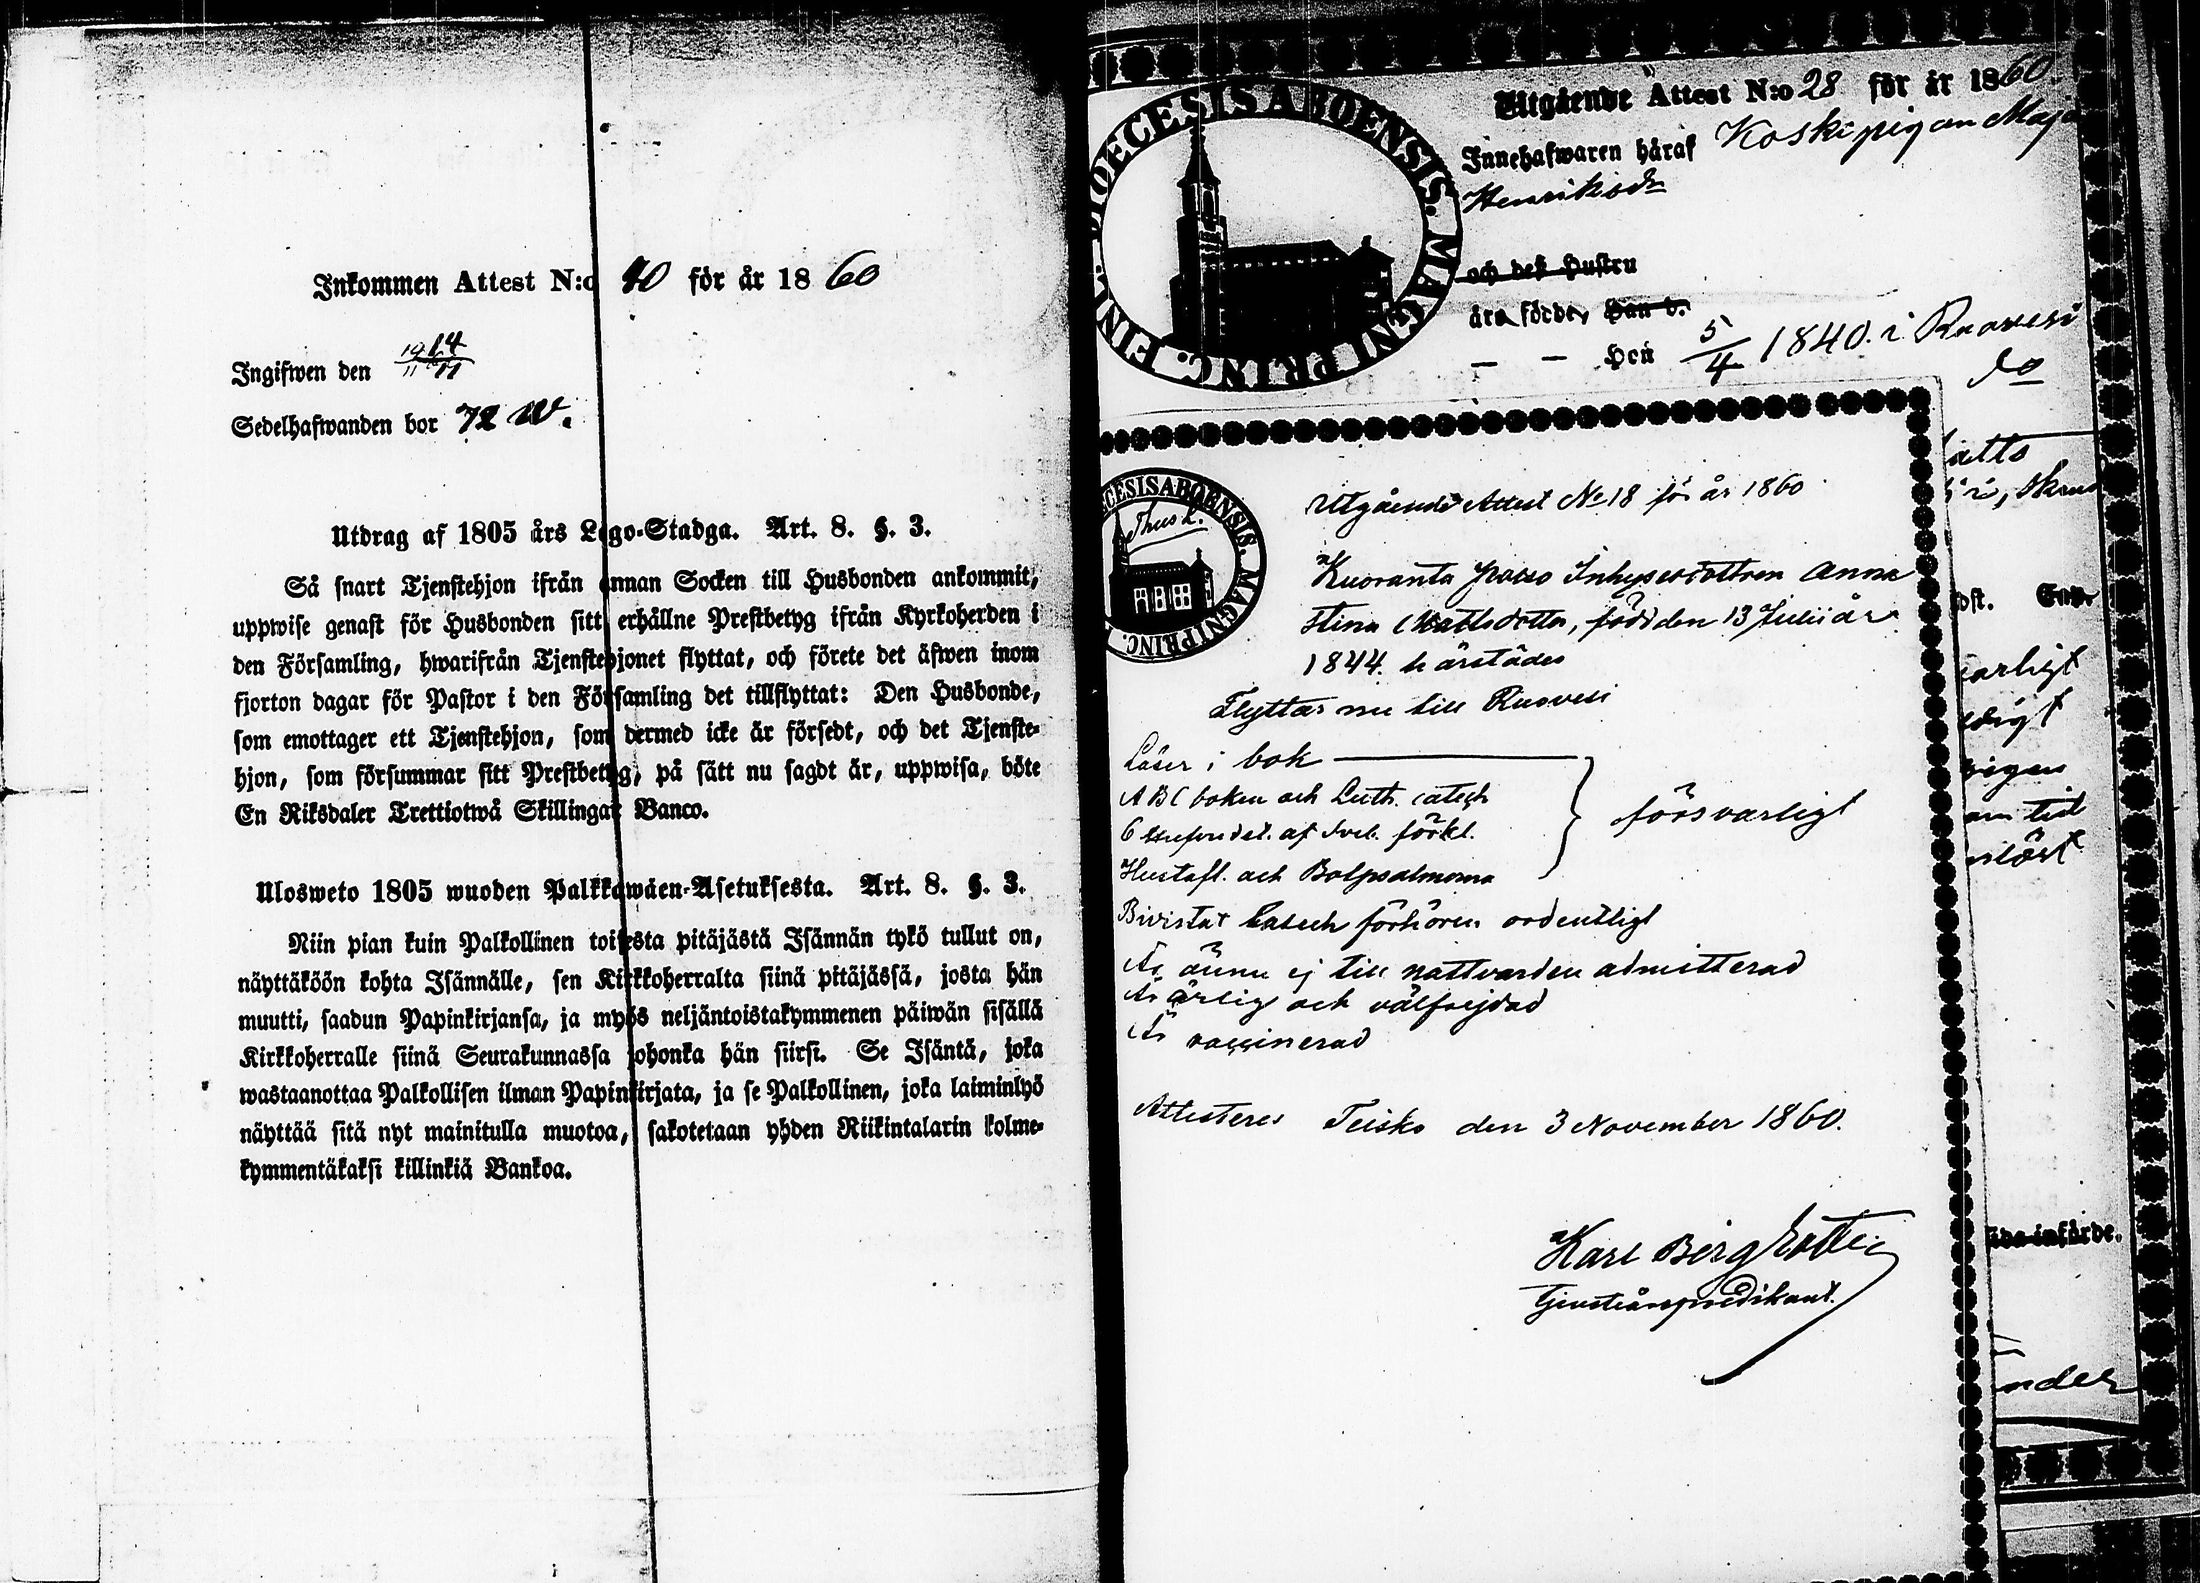 Inkommen Attest N:o 40 för år 1860
Ingifwen den 19/11
Sedelhafwanden bor 72 W.
Utdrag af 1805 års Lego-Stadga. Art. 8. §. 3.
Så snart Tjenstehjon ifrån annan Socken till Husbonden ankommit,
uppwise genast för Husbonden sitt erhållne Prestbetyg ifrån Kyrkoherden i
den Församling, hwarifrån Tjenstehjonet flyttat, och förete det äfwen inom
fjorton dagar för Pastor i den Församling det tillflyttat: Den Husbonde,
som emottager ett Tjenstehjon, som dermed icke är försedt, och det Tjenste-
hjon, som försummar sitt Prestbetyg, på sätt nu sagdt är, uppwisa, böte
En Riksdaler Trettiotwå Skillingar Banco.
Ulosweto 1805 wuoden Palkkawäen-Asetuksesta. Art. 8. §. 3.
Niin pian kuin Palkollinen toisesta pitäjästä Isännän tykö tullut on,
näyttäköön kohta Isännälle, sen Kirkkoherralta siinä pitäjässä, josta hän
muutti, saadun Papinkirjansa, ja myös neljäntoistakymmenen päiwän sisällä
Kirkkoherralle siinä Seurakunnassa johonka hän siirsi. Se Isäntä, joka
wastaanottaa Palkollisen ilman Papinkirjata, ja se Palkollinen, joka laiminlyö
näyttää sitä nyt mainitulla muotoa, sakotetaan yhden Riikintalarin kolme-
kymmentäkaksi killinkiä Bankoa.
DIOECESIS ABOENSIS. MAGNI PRINC. FINL.
Utgående Attest N:o 28 för år 1860.
Innehafwaren häraf Koski pigan Maja
Henriksdr
och deß Hustru
äro födde, Han d.
— — Hon 5/4 1840. i Ruovesi
do
atts
arligt
digt
am tid
löst
införde.
nder
CESIS ABOENSIS. MAGNI PRINC.
Utgående Attest No 18 för år 1860.
Kuoranta Inhysesdottren Anna
Stina Mattsdotter, född den 13 Julii år
1844. härstädes
Flyttar nu till Ruovesi
Läser i bok
ABC boken och Luth. catech
6 af Sveb. förkl. försvarligt
Hustafl. och Botpsalmerna
Bivistat Catech förhören ordentligt
Är ännu ej till nattvarden admitterad
Är ärlig och välfrejdad
Är vaccinerad
Attesteres Teisko den 3 November 1860.
Karl Berg
Tjensteårspredikant.